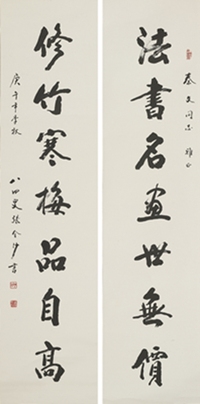 法書名畫世無價
泰文同志 雅正
修竹寒梅品自高
庚午年季秋
八四叟張
書